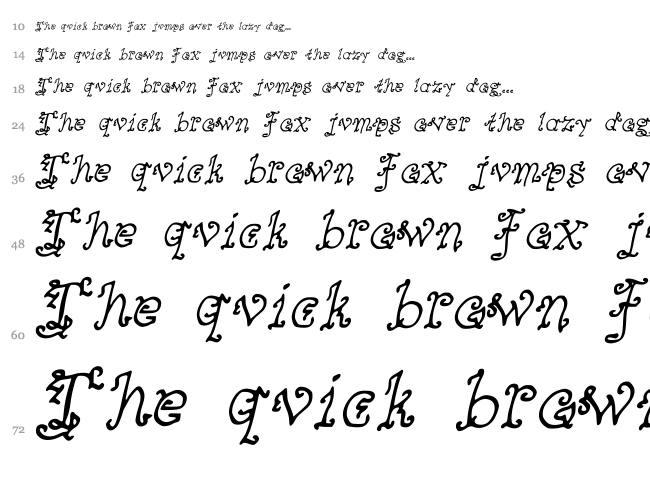 10 The quick brown Fox jumps over the lazy dog...
14 The quick brown Fox jumps over the lazy dog...
18 The quick brown Fox jumps over the lazy dog...
24 The quick brown Fox jumps over the lazy dog
36 The quick brown Fox jumps ov
48 The quick brown Fox j
60 The quick brown F
72 The quick brow